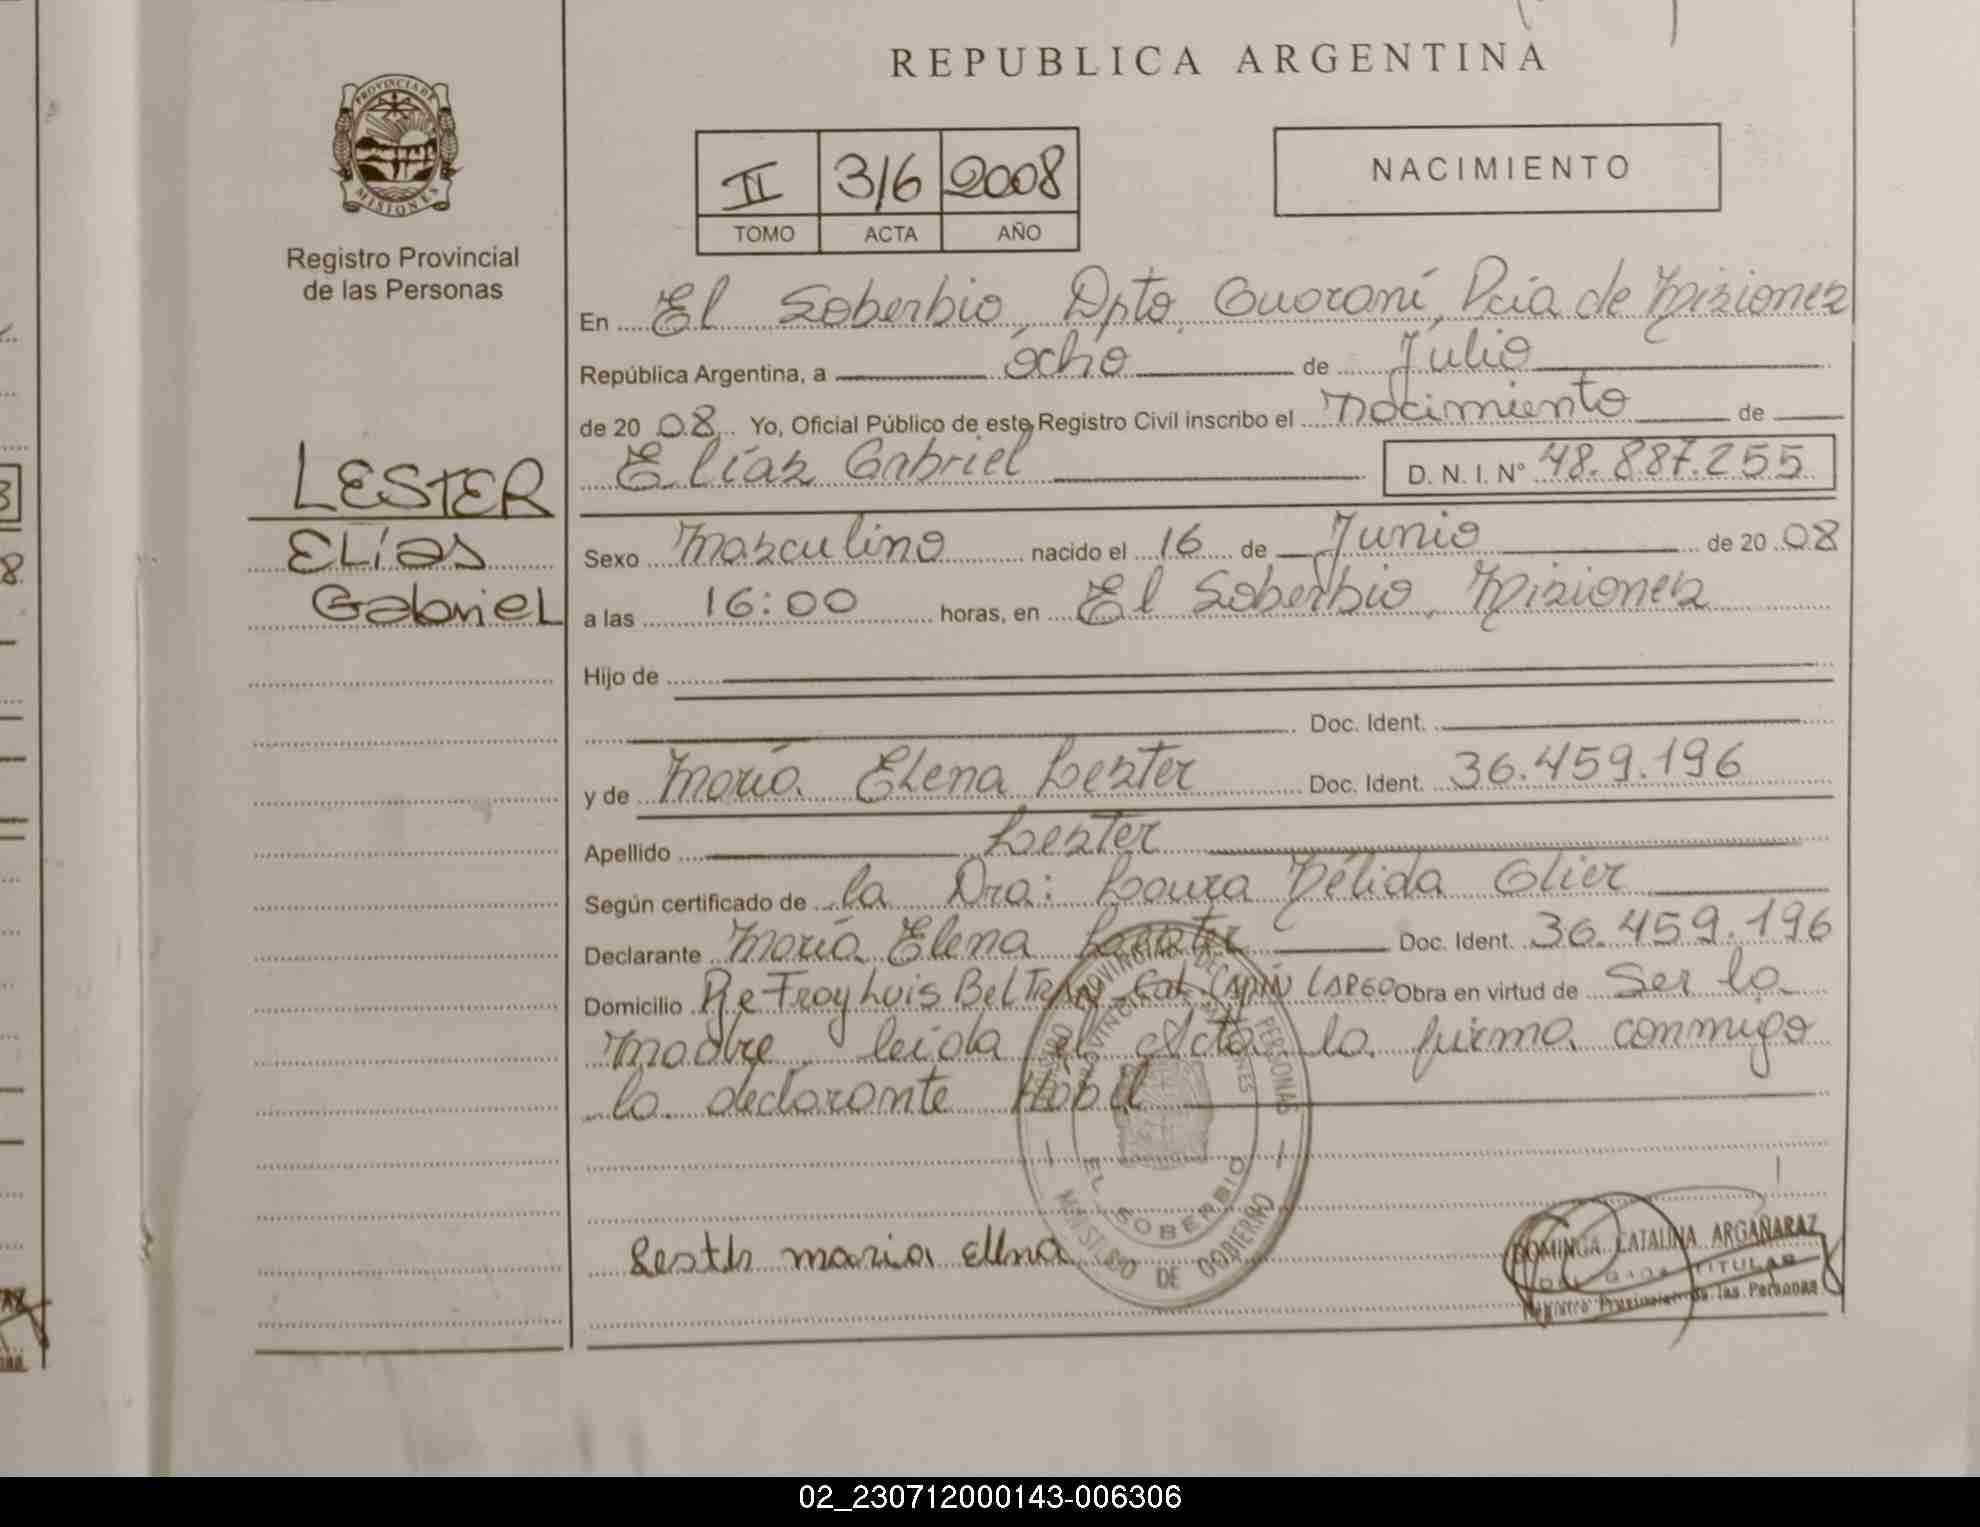 REPUBLICA ARGENTINA
PROVINCIA DE MISIONES
Registro Provincial
de las Personas
II 316 2008
TOMO ACTA AÑO
NACIMIENTO
En El Soberbio, Dpto. Guaraní, Pcia de Misiones
República Argentina, a ocho de Julio
de 20 08 Yo, Oficial Público de este Registro Civil inscribo el Nacimiento de
Elías Gabriel D. N. I. N° 48.887.255
LESTER
ELías
Gabriel
Sexo Masculino nacido el 16 de Junio de 20 08
a las 16:00 horas, en El Soberbio, Misiones
Hijo de
Doc. Ident.
y de María Elena Lester Doc. Ident. 36.459.196
Apellido Lester
Según certificado de la Dra: Laura Nélida Olier
Declarante María Elena Lester Doc. Ident. 36.459.196
Domicilio Pje Fray Luis BelTRAN Col. CAPIN LARGO Obra en virtud de Ser la
madre leída el Acta la firma conmigo
la declarante Hábil
EL SOBERBIO
MINISTERIO DE GOBIERNO
Lester maria Elena
DOMINGA CATALINA ARGAÑARAZ
TITULAR
Registro Provincial de las Personas
02_230712000143-006306